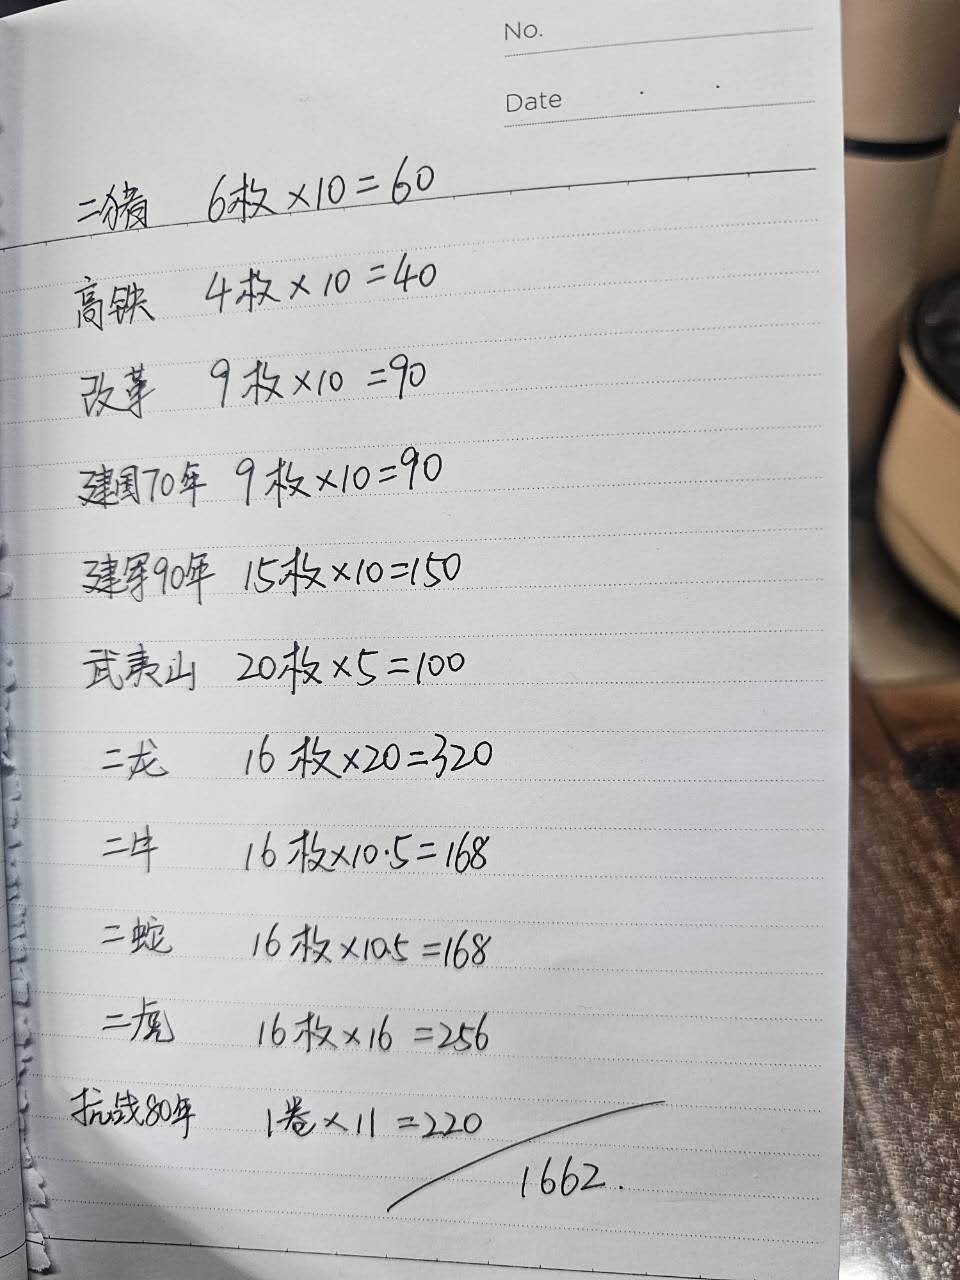 No.
Date
二猪 6枚×10=60
高铁 4枚×10=40
改革 9枚×10=90
建国70年 9枚×10=90
建军90年 15枚×10=150
武夷山 20枚×5=100
二龙 16枚×20=320
二牛 16枚×10.5=168
二蛇 16枚×10.5=168
二虎 16枚×16=256
抗战80年 1卷×11=220
1662.